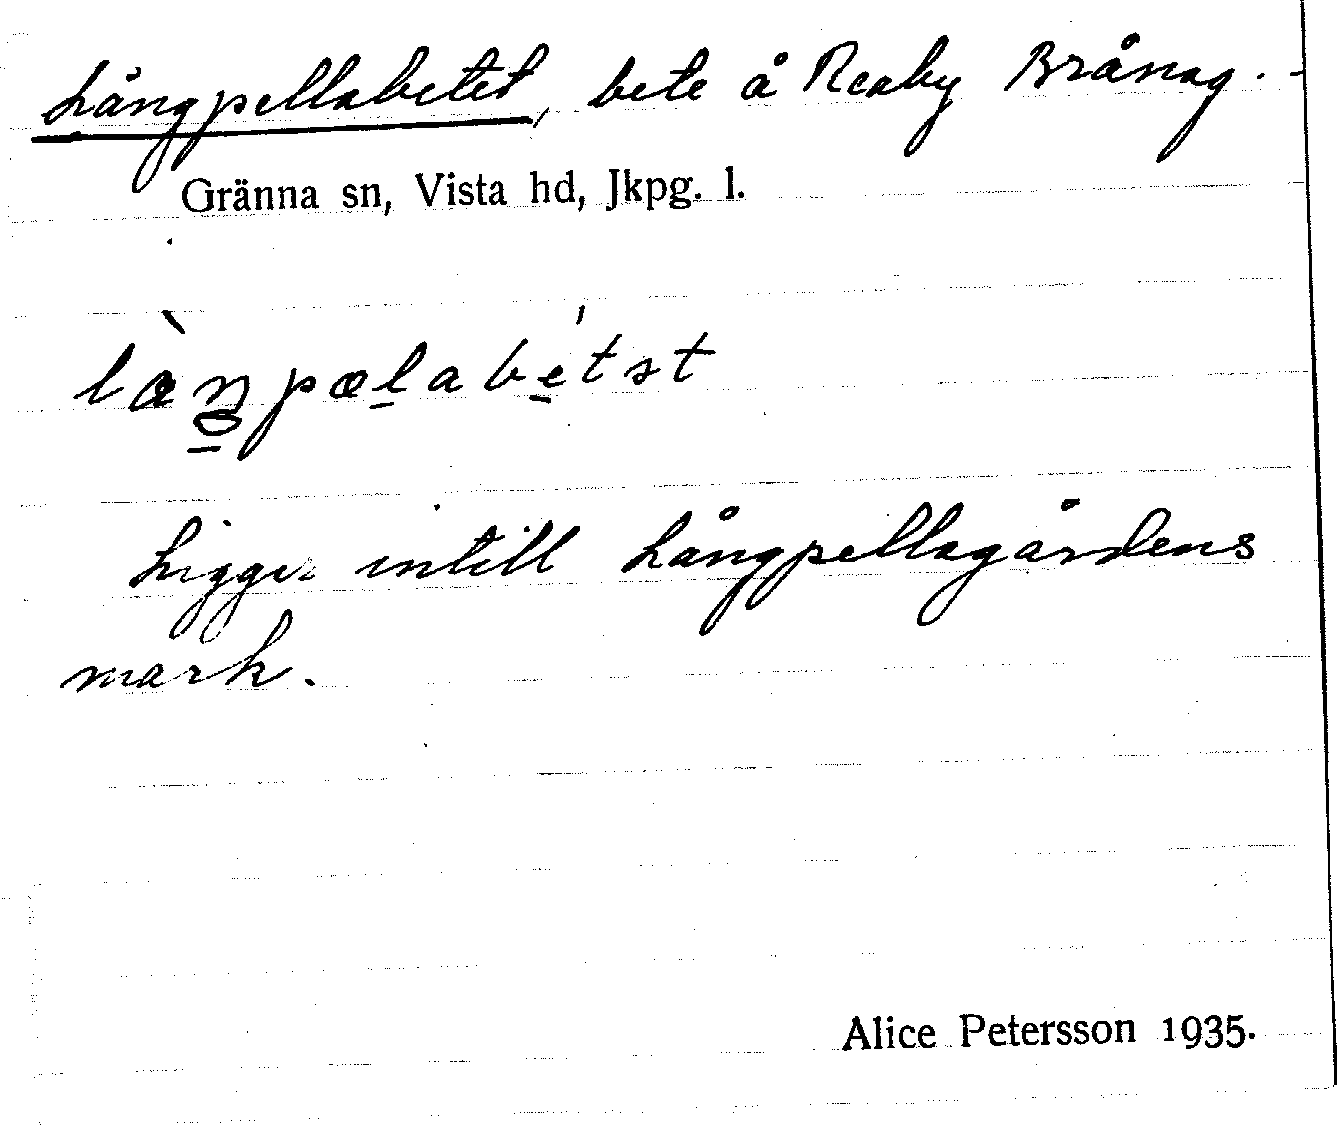 Långpellabetet, bete å Reaby Brånag.
Gränna sn, Vista hd, Jkpg. l.
Ligger intill Långpellagårdens
mark.
Alice Petersson 1935.